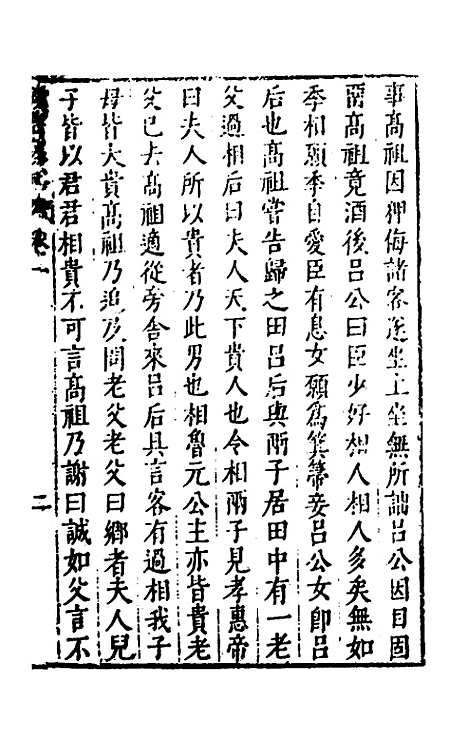 事高祖因狎侮諸客遂坐上坐無所詘呂公因目固
留高祖竟酒後呂公曰臣少好相人相人多矣無如
季相願季自愛臣有息女願為箕箒妾呂公女卽呂
后也高祖嘗告歸之田呂后與兩子居田中有一老
父過相后曰夫人天下貴人也令相兩子見孝惠帝
曰夫人所以貴者乃此男也相魯元公主亦皆貴老
父已去高祖適從旁舍來呂后具言客有過相我子
母皆大貴高祖乃追及問老父老父曰鄉者夫人兒
子皆以君君相貴不可言高祖乃謝曰誠如父言不
卷一
二